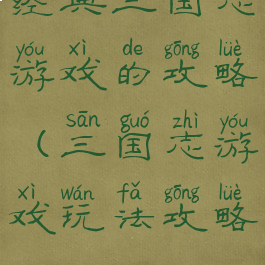 经典三国志
yóu xì de gōng lüè
游戏的攻略
sān guó zhì yóu
（三国志游
xì wán fǎ gōng lüè
戏玩法攻略